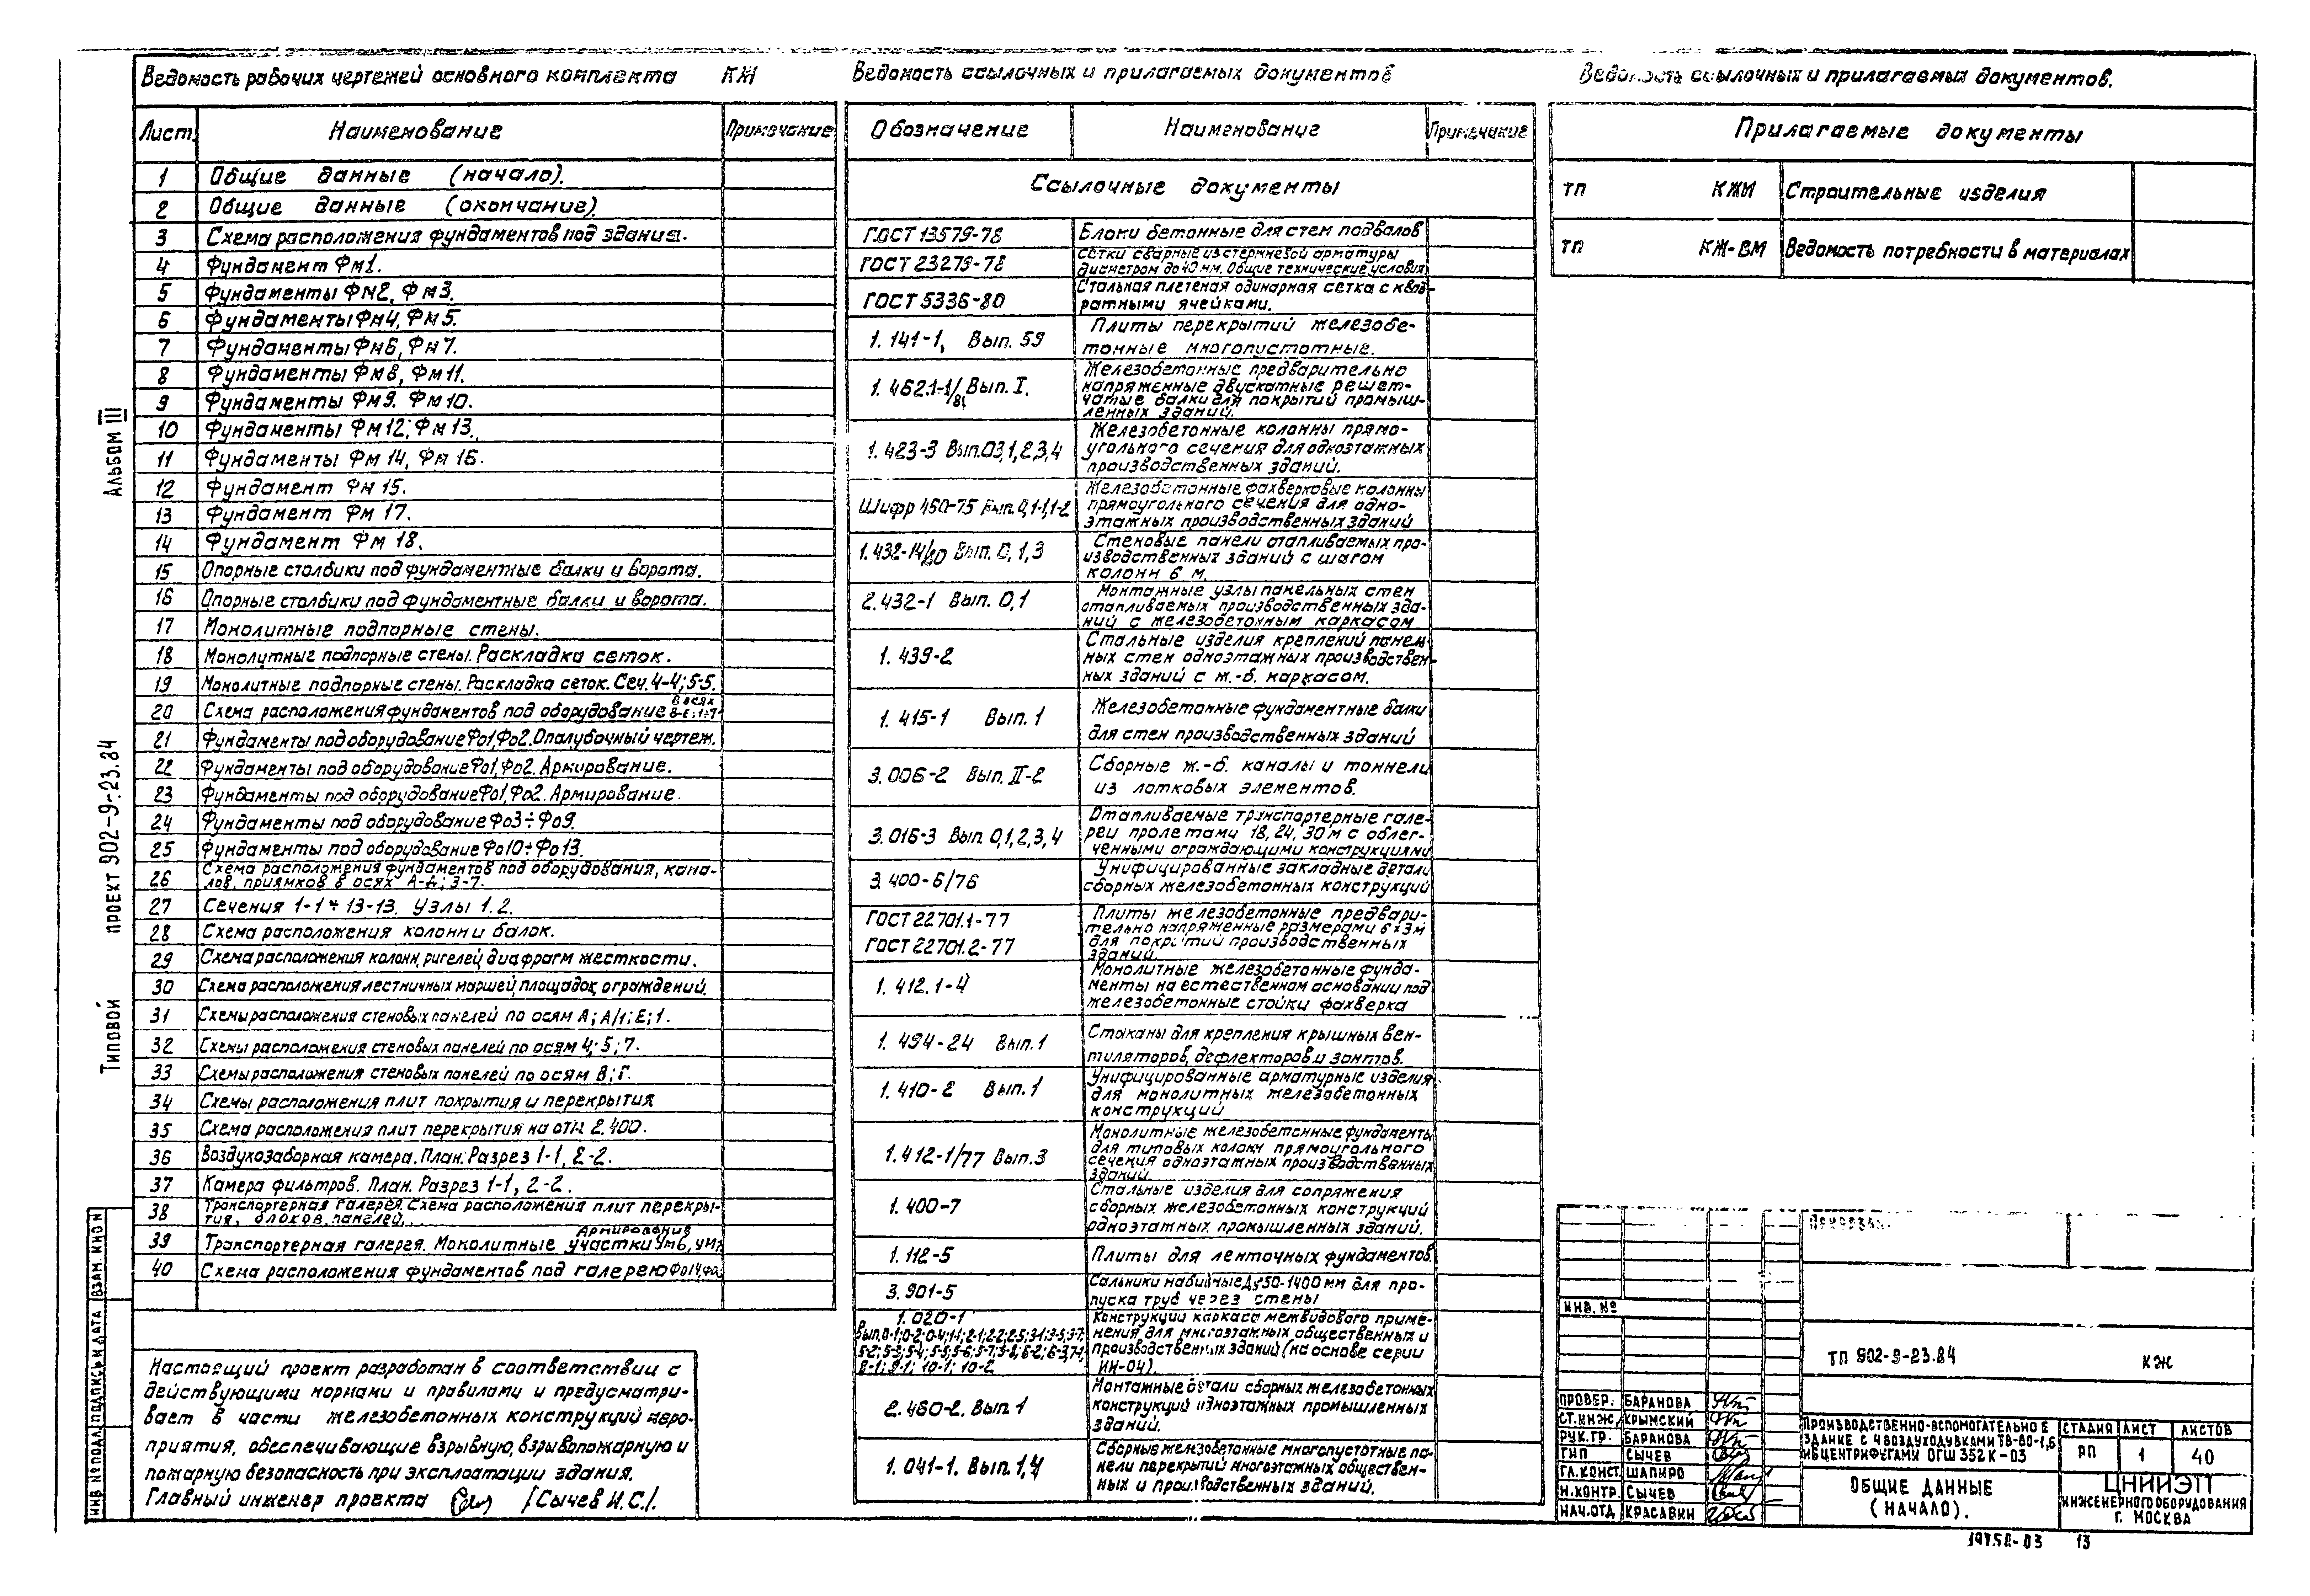 Ведомость рабочих чертежей основного комплекта КЖ
Лист Наименование Примечание
1 Общие данные (начало).
2 Общие данные (окончание).
3 Схема расположения фундаментов под здание.
4 Фундамент Фм1.
5 Фундаменты Фм2, Фм3.
6 Фундаменты Фм4, Фм5.
7 Фундаменты Фм6, Фм7.
8 Фундаменты Фм8, Фм11.
9 Фундаменты Фм9. Фм10.
10 Фундаменты Фм12; Фм13.
11 Фундаменты Фм14, Фм16.
12 Фундамент Фм15.
13 Фундамент Фм 17.
14 Фундамент Фм 18.
15 Опорные столбики под фундаментные балки и ворота.
16 Опорные столбики под фундаментные балки и ворота.
17 Монолитные подпорные стены.
18 Монолитные подпорные стены. Раскладка сеток.
19 Монолитные подпорные стены. Раскладка сеток. Сеч. 4-4; 5-5.
20 Схема расположения фундаментов под оборудование в осях В-Е; 1÷7
21 Фундаменты под оборудование Фо1, Фо2. Опалубочный чертеж.
22 Фундаменты под оборудование Фо1, Фо2. Армирование.
23 Фундаменты под оборудование Фо1, Фо2. Армирование.
24 Фундаменты под оборудование Фо3÷Фо9.
25 Фундаменты под оборудование Фо10÷Фо13.
26 Схема расположения фундаментов под оборудования, кана-
лов, приямков в осях А-Д; 3-7.
27 Сечения 1-1÷13-13. Узлы 1.2.
28 Схема расположения колонн и балок.
29 Схема расположения колонн, ригелей, диафрагм жесткости.
30 Схема расположения лестничных маршей, площадок, ограждений.
31 Схемы расположения стеновых панелей по осям А; А/1; Е; 1.
32 Схемы расположения стеновых панелей по осям 4; 5; 7.
33 Схемы расположения стеновых панелей по осям В; Г.
34 Схемы расположения плит покрытия и перекрытия
35 Схема расположения плит перекрытия на отм 2.400.
36 Воздухозаборная камера. План. Разрез 1-1, 2-2.
37 Камера фильтров. План. Разрез 1-1, 2-2.
38 Транспортерная галерея. Схема расположения плит перекры-
тия, блоков, панелей.
39 Транспортерная галерея. Монолитные участки Ум6, Ум7 Армирование
40 Схема расположения фундаментов под галерею Фо14,
Настоящий проект разработан в соответствии с
действующими нормами и правилами и предусматри-
вает в части железобетонных конструкций меро-
приятия, обеспечивающие взрывную, взрывопожарную и
пожарную безопасность при эксплоатации здания.
Главный инженер проекта /Сычев И.С./.
Ведомость ссылочных и прилагаемых документов
Обозначение Наименование Примечание
Ссылочные документы
ГОСТ 13579-78 Блоки бетонные для стен подвалов
ГОСТ 23279-78 Сетки сварные из стержневой арматуры
диаметром до 40 мм. Общие технические условия
ГОСТ 5336-80 Стальная плетеная одинарная сетка с квад-
ратными ячейками.
1. 141-1, Вып. 59 Плиты перекрытий железобе-
тонные многопустотные.
1. 462.1-1/81 Вып. I. Железобетонные предварительно
напряженные двускатные решет-
чатые балки для покрытий промыш-
ленных зданий.
1. 423-3 Вып. 03,1,2,3,4 Железобетонные колонны прямо-
угольного сечения для одноэтажных
производственных зданий.
Шифр 460-75 Вып. 0,1-1,1-2 Железобетонные фахверковые колонны
прямоугольного сечения для одно-
этажных производственных зданий
1.432-14/80 Вып. 0, 1,3 Стеновые панели отапливаемых про-
изводственных зданий с шагом
колонн 6 м.
2.432-1 Вып. 0,1 Монтажные узлы панельных стен
отапливаемых производственных зда-
ний с железобетонным каркасом
1. 439-2 Стальные изделия креплений панель
ных стен одноэтажных производствен-
ных зданий с ж.-б. каркасом.
1. 415-1 Вып. 1 Железобетонные фундаментные балки
для стен производственных зданий
3.006-2 Вып. II-2 Сборные ж.-б. каналы и тоннели
из лотковых элементов.
3.016-3 Вып. 0,1,2,3,4 Отапливаемые транспортерные гале-
реи пролетами 18, 24, 30 м с облег-
ченными ограждающими конструкциями
3.400-6/76 Унифицированные закладные детали
сборных железобетонных конструкций
ГОСТ 22701.1-77
ГОСТ 22701.2-77
Плиты железобетонные предвари-
тельно напряженные размерами 6х3м
для покрытий производственных
зданий.
1. 412.1-4 Монолитные железобетонные фунда-
менты на естественном основании под
железобетонные стойки фахверка
1. 494-24 Вып. 1 Стаканы для крепления крышных вен-
тиляторов, дефлекторов и зонтов.
1. 410-2 Вып. 1 Унифицированные арматурные изделия
для монолитных железобетонных
конструкций
1.412-1/77 Вып.3 Монолитные железобетонные фундаменты
для типовых колонн прямоугольного
сечения одноэтажных производственных
зданий.
1. 400-7 Стальные изделия для сопряжения
сборных железобетонных конструкций
одноэтажных промышленных зданий.
1. 112-5 Плиты для ленточных фундаментов.
3. 901-5 Сальники набивные Ду50-1400 мм для про-
пуска труб через стены
1. 020-1
8-1; 9-1; 10-1; 10-2
Конструкции каркаса межвидового приме-
нения для многоэтажных общественных и
производственных зданий (на основе серии
ИИ-04).
2. 460-2. Вып 1 Монтажные детали сборных железобетонных
конструкций одноэтажных промышленных
зданий.
1. 041-1. Вып. 1,4 Сборные железобетонные многопустотные па-
нели перекрытий многоэтажных обществен-
ных и производственных зданий.
Ведомость ссылочных и прилагаемых документов.
Прилагаемые документы
ТП КЖИ Строительные изделия
ТП КЖ-ВМ Ведомость потребности в материалах
Альбом III
Типовой проект 902-9-23.84
ИНВ. № ПОДЛ. ПОДПИСЬ И ДАТА ВЗАМ. ИНВ №
ПРИВЯЗАН:
ИНВ. №
ТП 902-9-23.84 КЖ
ПРОВЕР. БАРАНОВА
СТ.ИНЖ. КРЫМСКИЙ
РУК.ГР. БАРАНОВА
ГИП СЫЧЕВ
ГЛ.КОНСТ. ШАПИРО
Н.КОНТР. СЫЧЕВ
НАЧ.ОТД КРАСАВИН
ПРОИЗВОДСТВЕННО-ВСПОМОГАТЕЛЬНОЕ
ЗДАНИЕ С 4 ВОЗДУХОДУВКАМИ ТВ-80-1,6
И 6 ЦЕНТРИФУГАМИ ОГШ 352К-03
СТАДИЯ ЛИСТ ЛИСТОВ
РП 1 40
ОБЩИЕ ДАННЫЕ
(НАЧАЛО).
ЦНИИЭП
ИНЖЕНЕРНОГО ОБОРУДОВАНИЯ
Г. МОСКВА
13